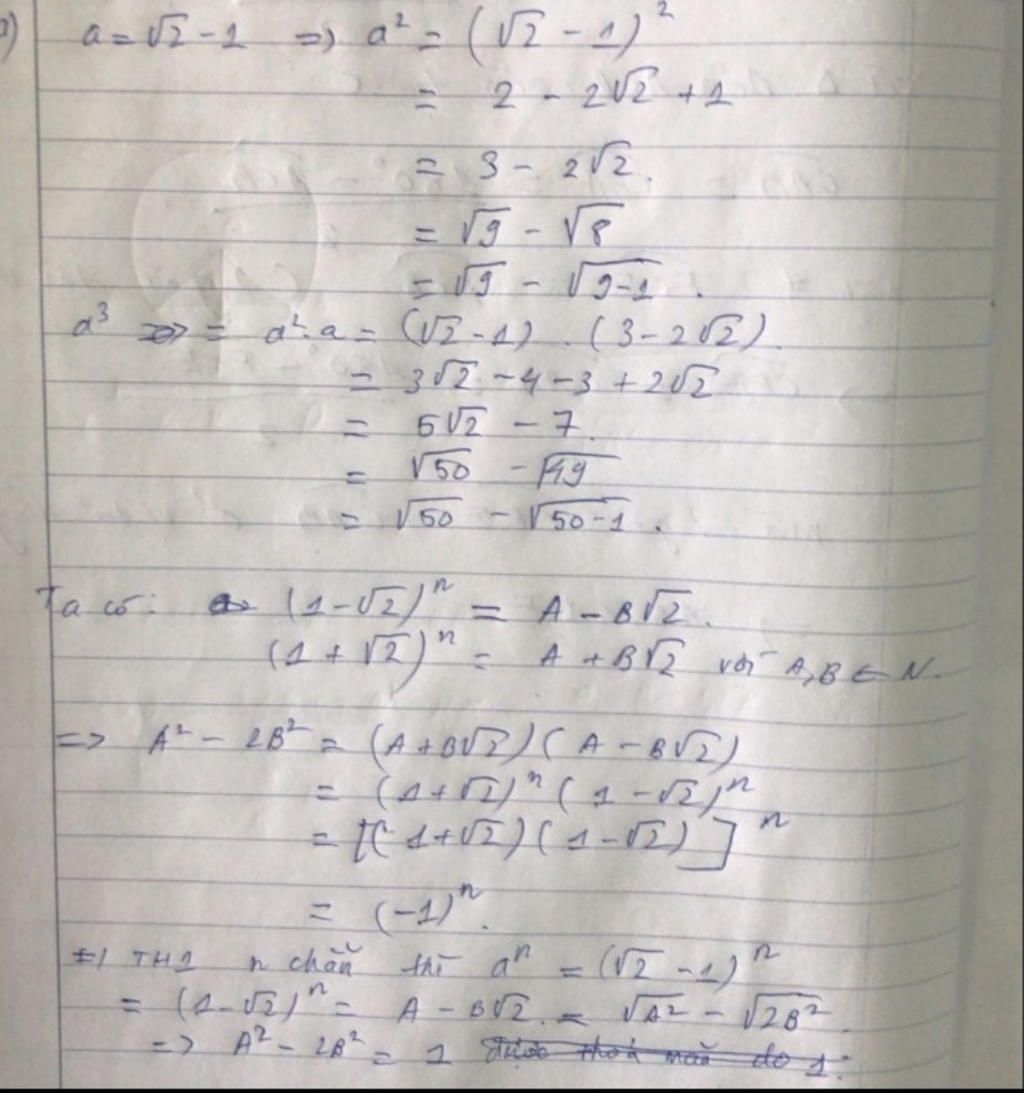 a = √2 - 1 => a² = (√2 - 1)²
= 2 - 2√2 + 1
= 3 - 2√2.
= √9 - √8
= √9 - √(9-1).
a³ = a².a = (√2-1).(3-2√2).
= 3√2 - 4 - 3 + 2√2
= 5√2 - 7.
= √50 - √49
= √50 - √(50-1).
Ta có: (1-√2)ⁿ = A - B√2.
(1+√2)ⁿ = A + B√2 với A,B ∈ N.
=> A² - 2B² = (A+B√2)(A-B√2)
= (1+√2)ⁿ(1-√2)ⁿ
= [(1+√2)(1-√2)]ⁿ
= (-1)ⁿ.
+) TH1 n chẵn thì aⁿ = (√2-1)ⁿ
= (1-√2)ⁿ = A - B√2. = √A² - √2B².
=> A² - 2B² = 1 được thoả mãn do 1.